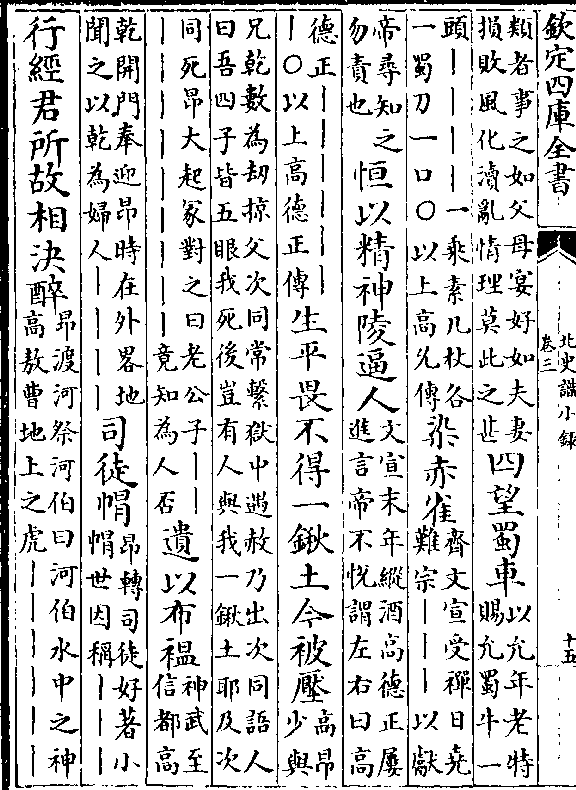 欽定四庫全書
北史識小録
卷三
十五
類者事之如父母宴好如夫妻
損敗風化瀆亂情理莫此之甚
四望蜀車
以允年老特
賜允蜀牛一
頭｜｜｜｜一乘素几杖各
一蜀刀一口○以上高允傳
染赤雀
齊文宣受禪日堯
難宗｜｜｜以獻
帝尋知之
勿責也
恒以精神陵逼人
文宣末年縱酒高德正屢
進言帝不悅謂左右曰高
德正｜｜｜｜｜｜
｜○以上高德正傳
生平畏不得一鍬土今被壓
高昂
少與
兄乾數為劫掠父次同常繫獄中遇赦乃出次同語人
曰吾四子皆五眼我死後豈有人與我一鍬土耶及次
同死昂大起冢對之曰老公子｜｜
｜｜｜｜｜｜｜｜｜竟知為人否
遺以布褞
神武至
信都高
乾開門奉迎昂時在外畧地
聞之以乾為婦人｜｜｜｜
司徒帽
昂轉司徒好著小
帽世因稱｜｜｜
行經君所故相決醉
昂渡河祭河伯曰河伯水中之神
高敖曹地上之虎｜｜｜｜｜｜｜｜